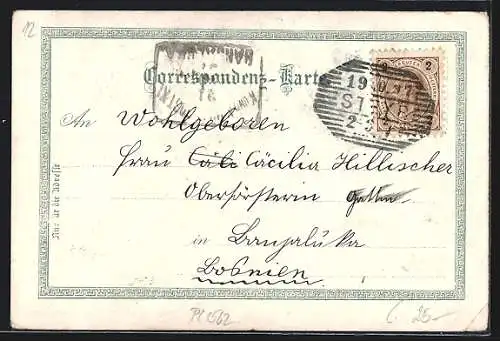 12
Correspondenz-Karte
2 2
19
2-3
An Wohlgeboren
Frau Cäcilia Hillischer
Oberförsterin Gattin
in Banjaluka
Bosnien
Nur für die Adresse
25-